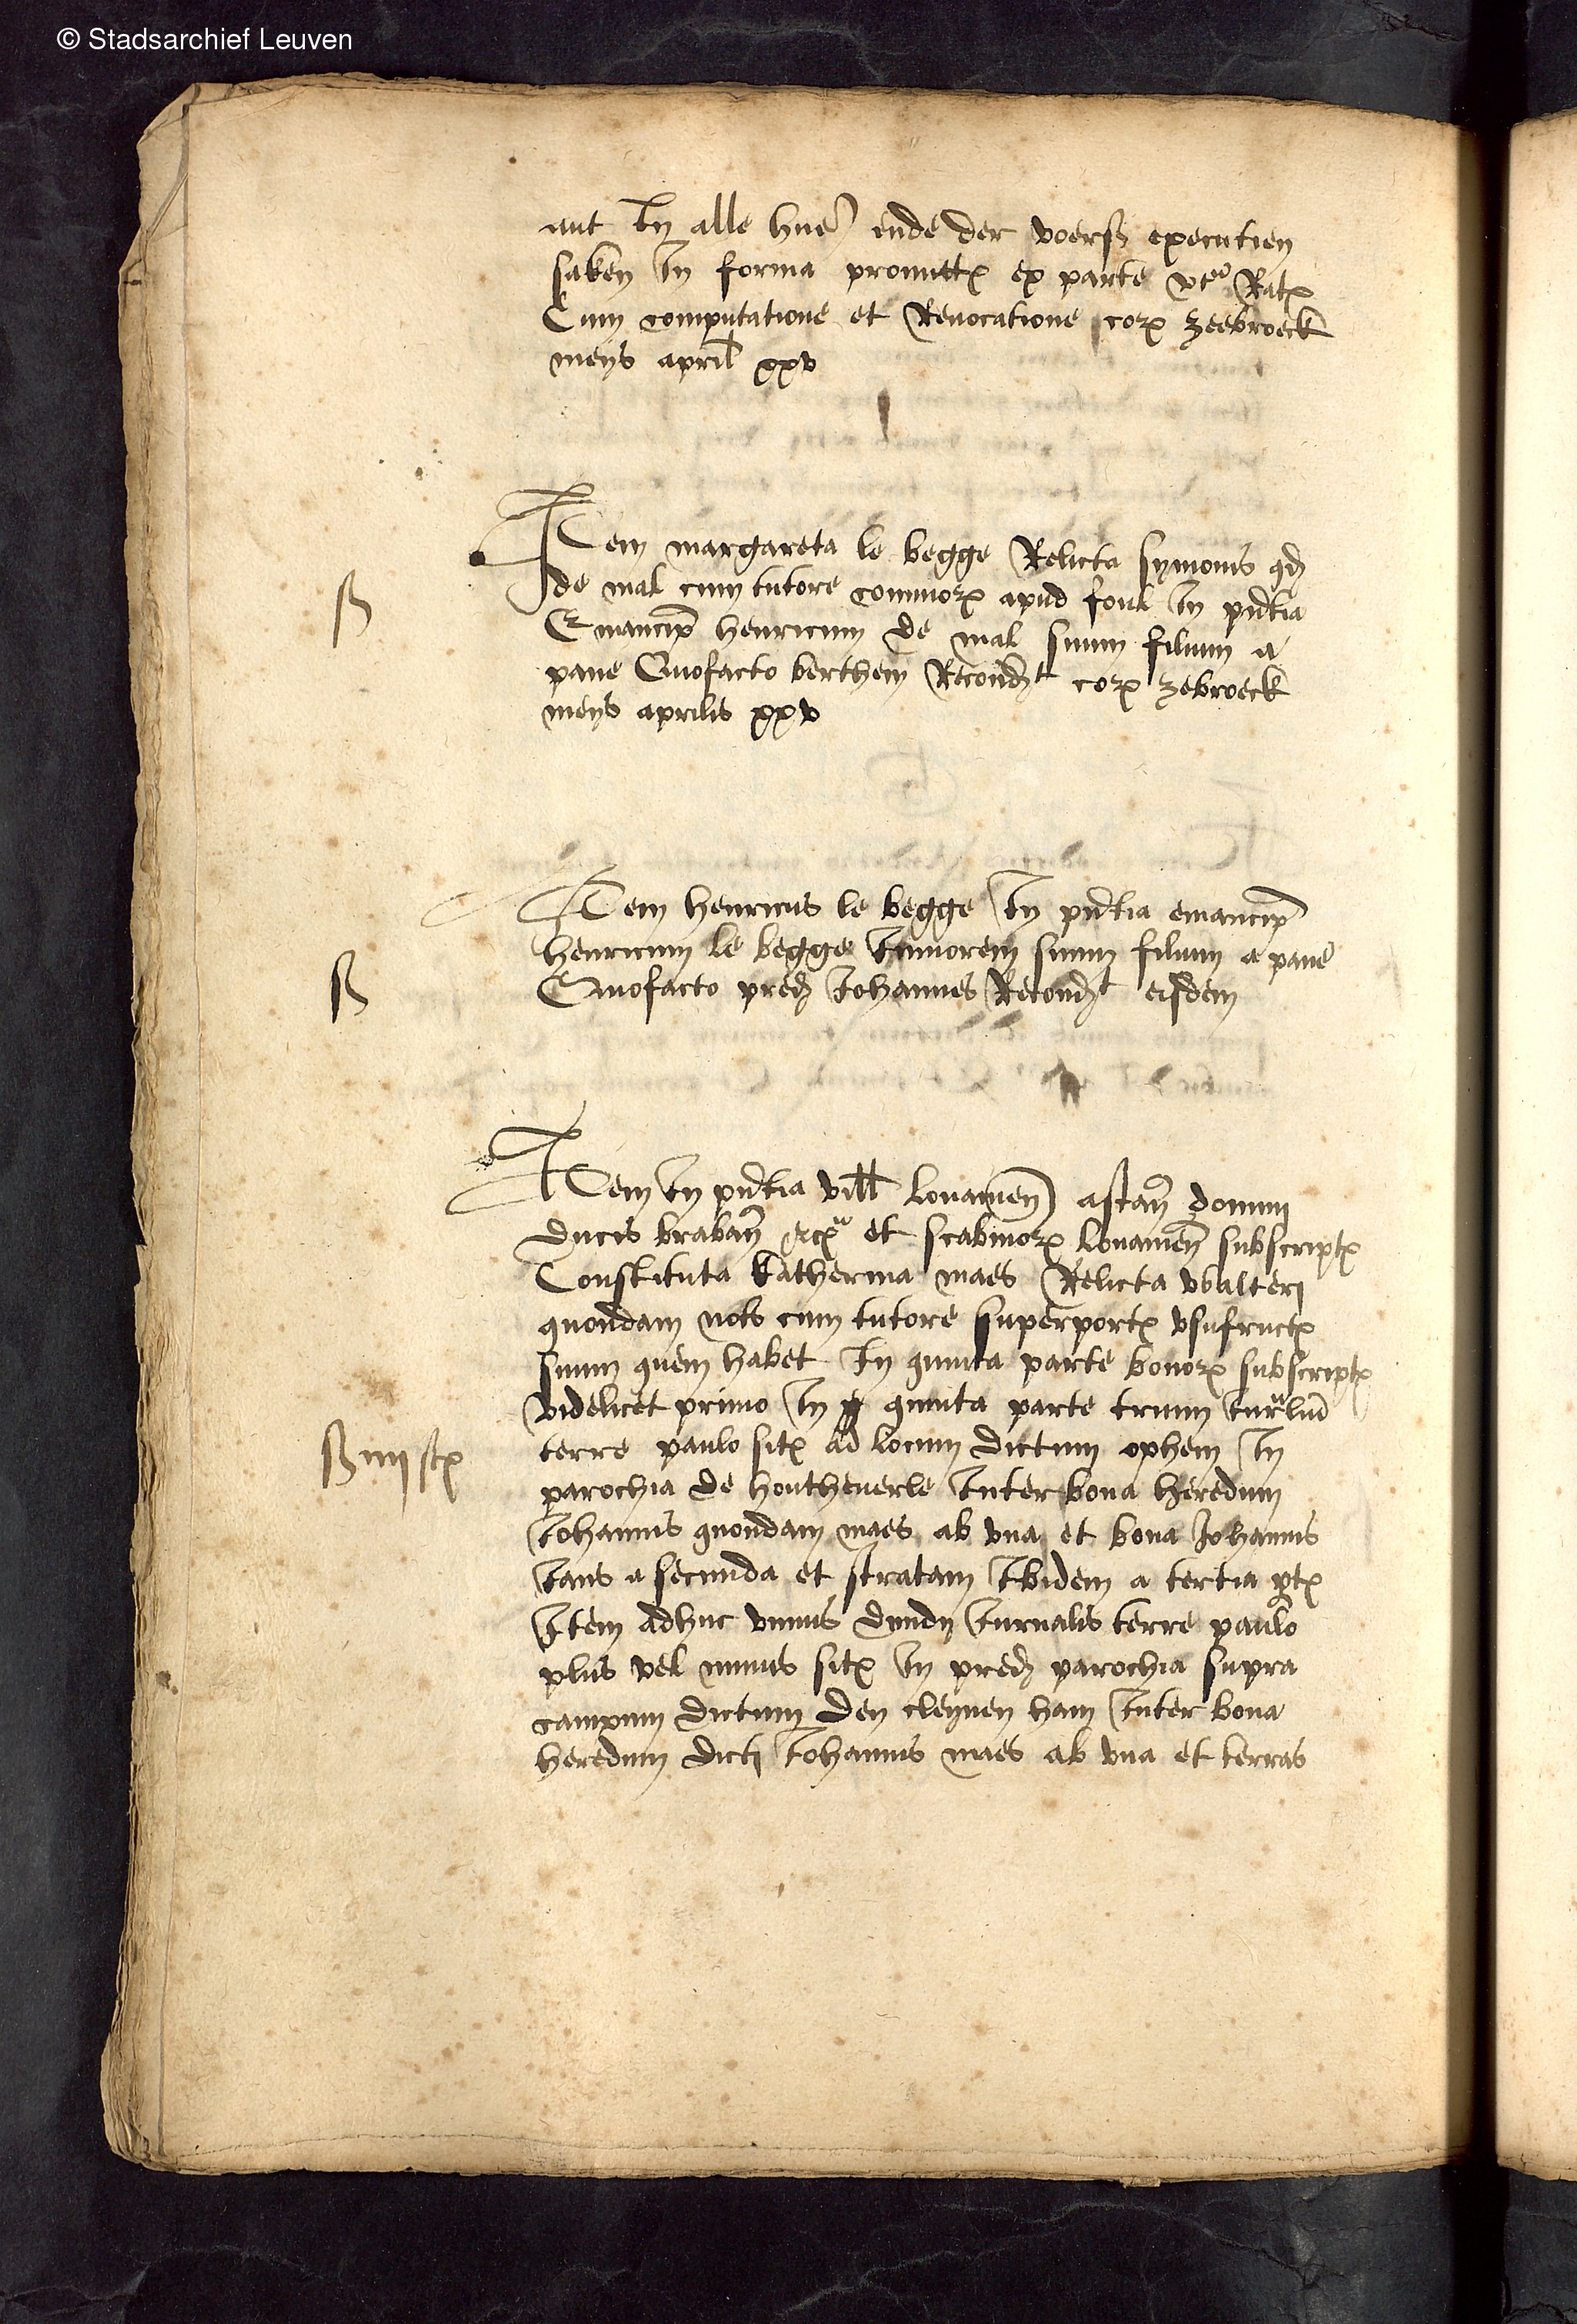 © Stadsarchief Leuven
aut in alle huer ende der voers executien
saken in forma promittens ex parte Ratum
Cum computatione et Revocatione coram zeebroeck
meys april xxv
Item margareta le begge Relicta symonis quondam
de mal cum tutore commorans apud in presentia
Emancipavit henricum de mal suum filium a
pane Quofacto berthem Reconduxit coram zebroeck
meys aprilis xxv
ß
Item henricus le begge in presentia emancipavit
henricum le begge Juniorem suum filium a pane
Quofacto pred Johannes Reconduxit eisdem
ß
Item in presentia vill lovanien astan domini
ducis braban et scabinorum lovanien subscript
Constituta katherina maes Relicta walteri
quondam cum tutore supportavit usufructum
suum quem habet In quinta parte bonorum subscript
videlicet primo in quinta parte trium iurnalium
terre paulo sit ad locum dictum ophem in
parochia de houtheverle Inter bona heredum
Johannis quondam maes ab una et bona Johannis
tans a secunda et stratam ibidem a tertia partibus
Item adhuc unius dimidii Jurnalis terre paulo
plus vel minus sit in pred parochia supra
campum dictum den cleynen ham Inter bona
heredum dicti Johannis maes ab una et terras